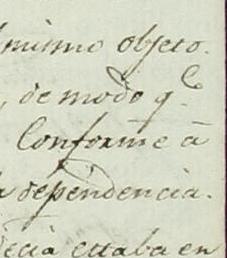 mismo objeto.
, de modo q.e
Conforme à
a dependencia.
decia estaba en